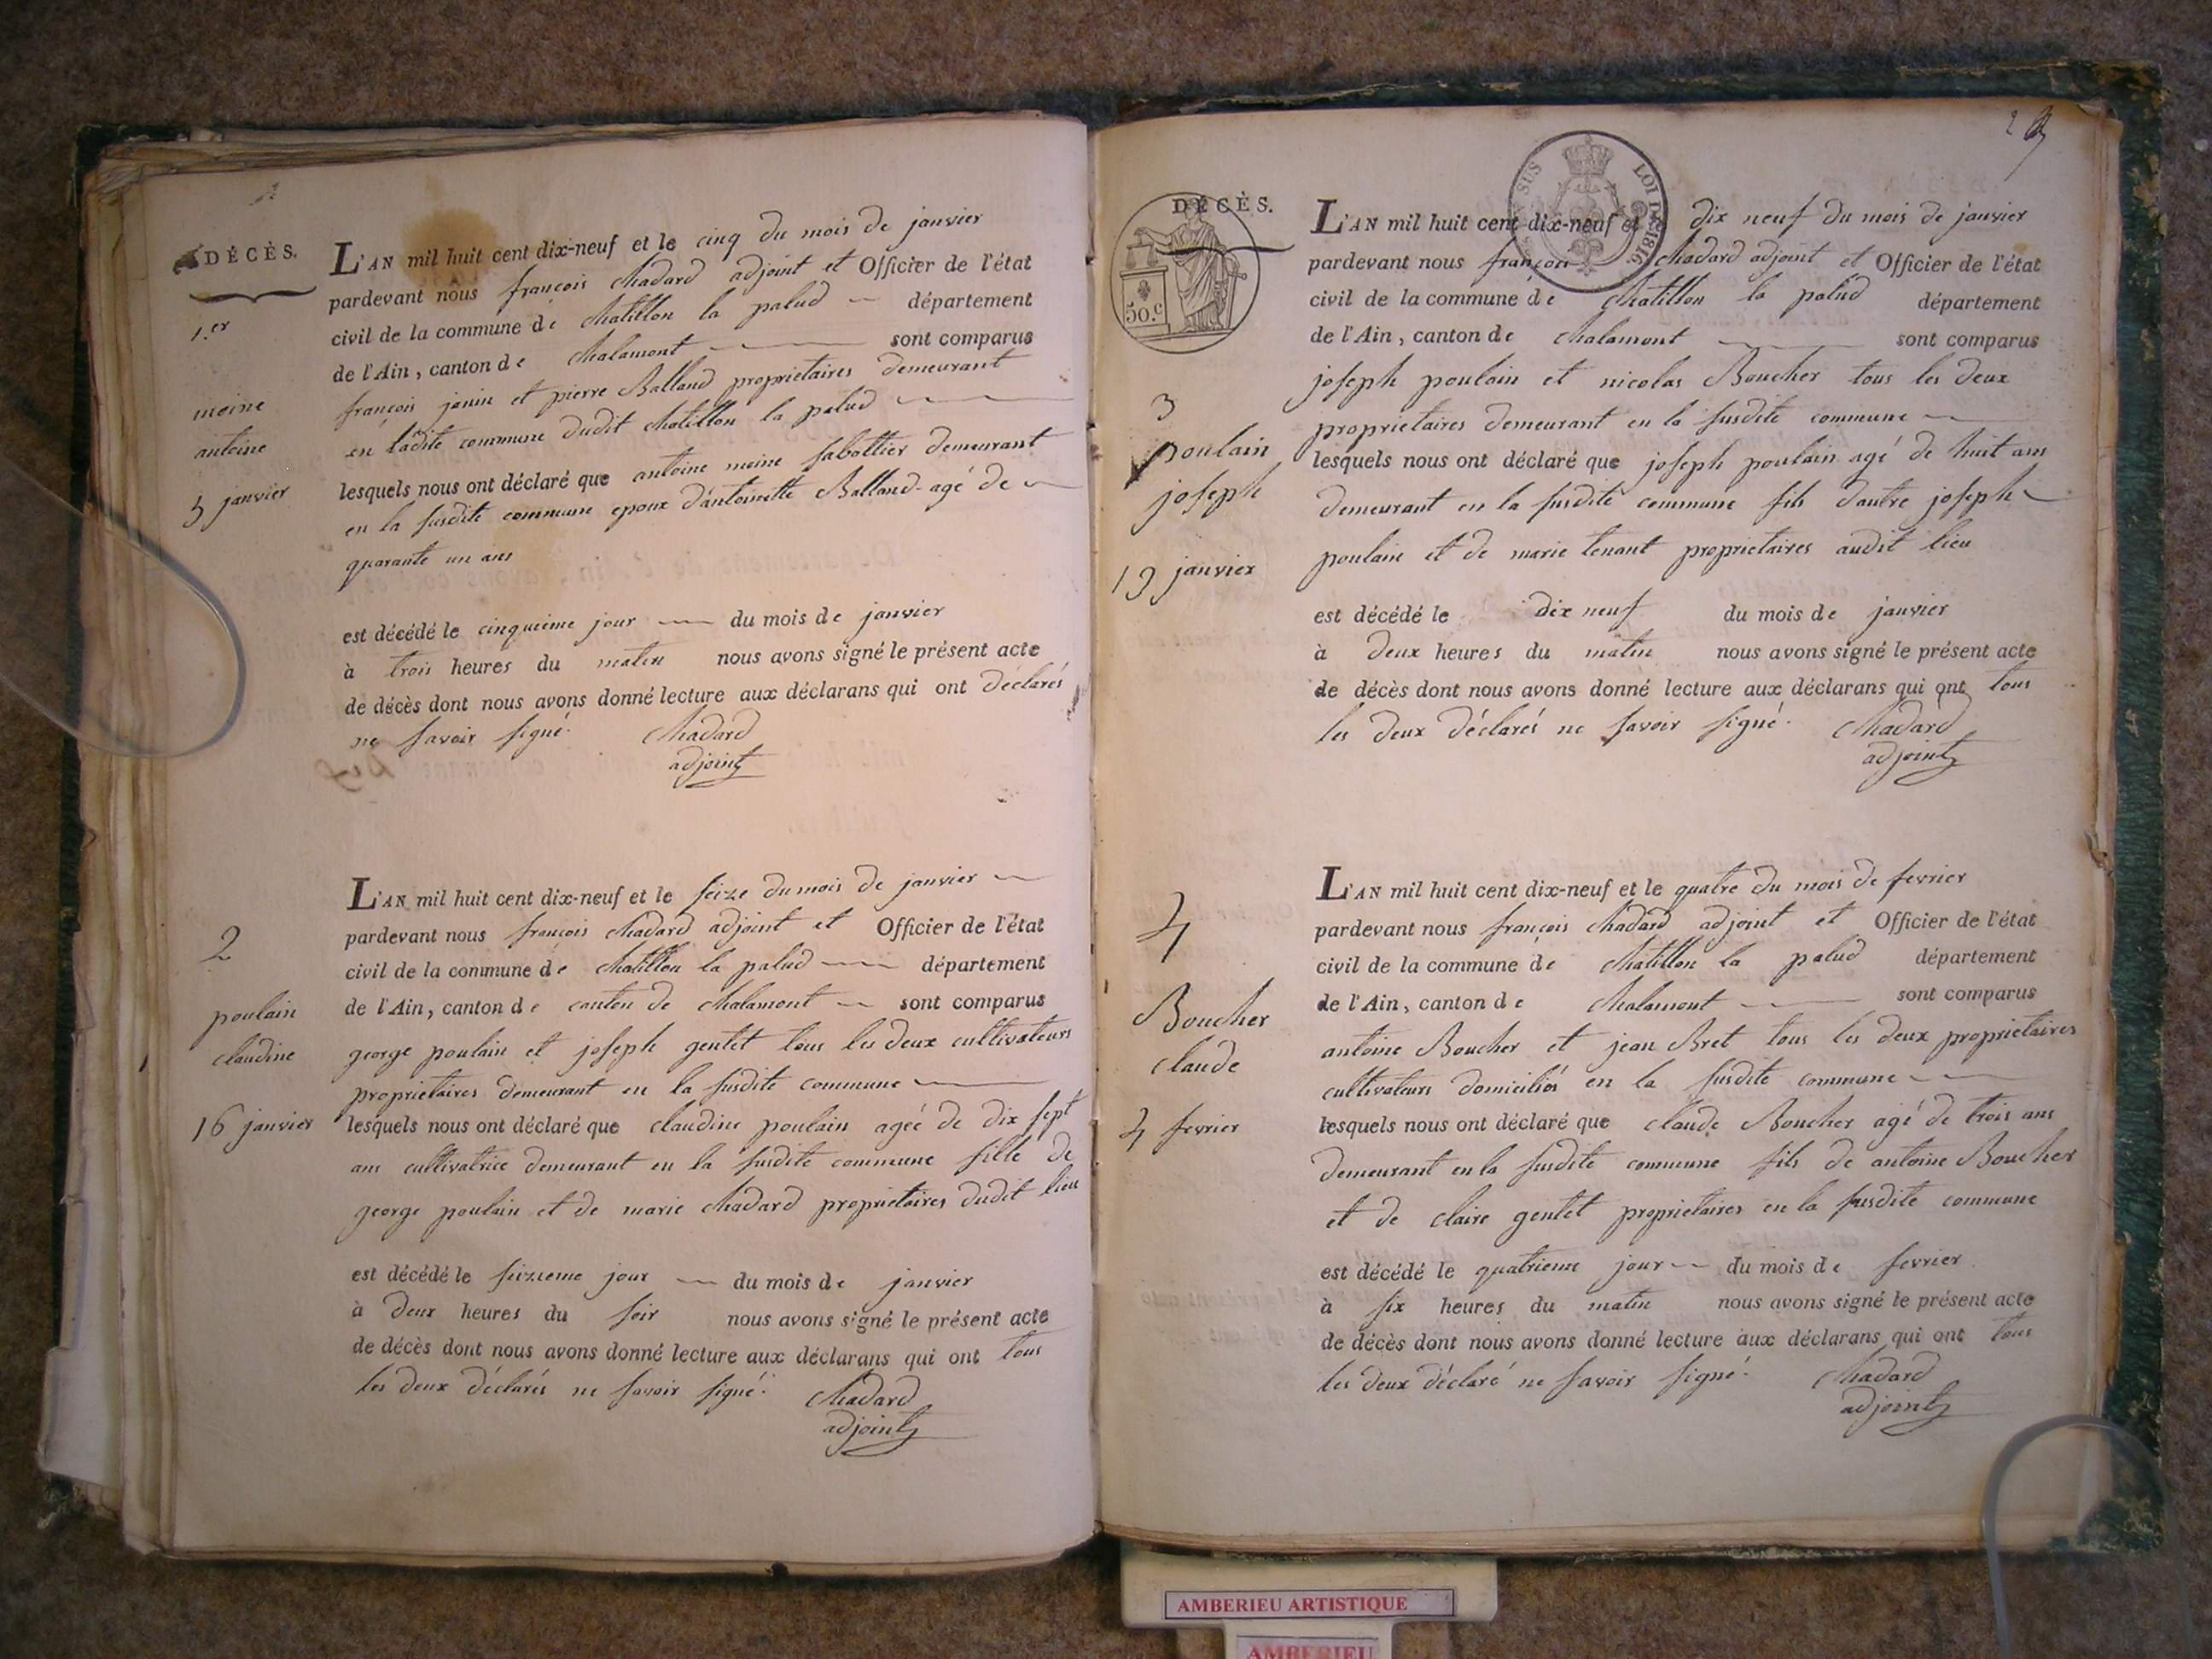 DÉCÈS.
1.er
moine
antoine
5 janvier
L'AN mil huit cent dix-neuf et le cinq du mois de janvier
pardevant nous françois Chadard adjoint et Officier de l'état
civil de la commune de Chatillon la palud département
de l'Ain, canton de Chalamont sont comparus
françois janin et pierre Balland proprietaires demeurant
en ladite commune dudit Chatillon la palud
lesquels nous ont déclaré que antoine moine sabottier demeurant
en la susdite commune epoux d'antoinette Balland agé de
quarante un ans
est décédé le cinquieme jour du mois de janvier
à trois heures du matin nous avons signé le présent acte
de décès dont nous avons donné lecture aux déclarans qui ont déclarés
ne savoir signé. Chadard
adjoint
2
poulain
claudine
16 janvier
L'AN mil huit cent dix-neuf et le seize du mois de janvier
pardevant nous françois Chadard adjoint et Officier de l'état
civil de la commune de Chatillon la palud département
de l'Ain, canton de canton de Chalamont sont comparus
george poulain et joseph gentet tous les deux cultivateurs
proprietaires demeurant en la susdite commune
lesquels nous ont déclaré que claudine poulain agée de dix sept
ans cultivatrice demeurant en la susdite commune fille de
george poulain et de marie Chadard proprietaires dudit lieu
est décédé le seizieme jour du mois de janvier
à deux heures du soir nous avons signé le présent acte
de décès dont nous avons donné lecture aux déclarans qui ont tous
les deux déclarés ne savoir signé. Chadard
adjoint
2
DÉCÈS.
SUS LOI DE 1816
50.c
3
poulain
joseph
19 janvier
L'AN mil huit cent dix-neuf et le dix neuf du mois de janvier
pardevant nous françois Chadard adjoint et Officier de l'état
civil de la commune de Chatillon la palud département
de l'Ain, canton de Chalamont sont comparus
joseph poulain et nicolas Boucher tous les deux
proprietaires demeurant en la susdite commune
lesquels nous ont déclaré que joseph poulain agé de huit ans
demeurant en la susdite commune fils d'autre joseph
poulain et de marie tenant proprietaires audit lieu
est décédé le dix neuf du mois de janvier
à deux heures du matin nous avons signé le présent acte
de décès dont nous avons donné lecture aux déclarans qui ont tous
les deux déclarés ne savoir signé. Chadard
adjoint
4
Boucher
claude
4 fevrier
L'AN mil huit cent dix-neuf et le quatre du mois de fevrier
pardevant nous françois Chadard adjoint et Officier de l'état
civil de la commune de Chatillon la palud département
de l'Ain, canton de Chalamont sont comparus
antoine Boucher et jean Bret tous les deux proprietaires
cultivateurs domiciliés en la susdite commune
lesquels nous ont déclaré que claude Boucher agé de trois ans
demeurant en la susdite commune fils de antoine Boucher
et de claire gentet proprietaires en la susdite commune
est décédé le quatrieme jour du mois de fevrier
à six heures du matin nous avons signé le présent acte
de décès dont nous avons donné lecture aux déclarans qui ont tous
les deux déclaré ne savoir signé. Chadard
adjoint
AMBERIEU ARTISTIQUE
AMBERIEU